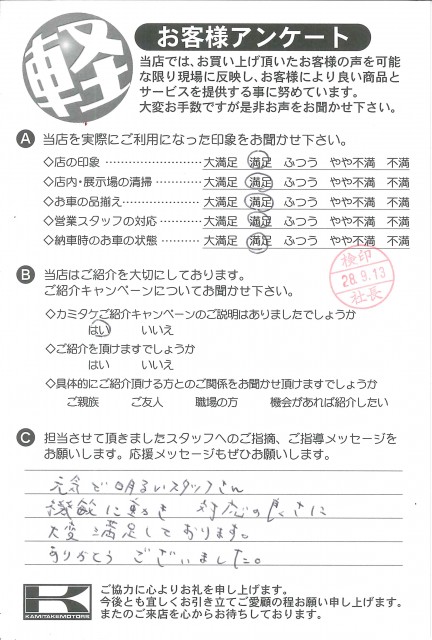 軽
お客様アンケート
当店では、お買い上げ頂いたお客様の声を可能
な限り現場に反映し、お客様により良い商品と
サービスを提供する事に努めています。
大変お手数ですが是非お声をお聞かせ下さい。
A 当店を実際にご利用になった印象をお聞かせ下さい。
◇店の印象 ……………………… 大満足 満足 ふつう やや不満 不満
◇店内・展示場の清掃 ………… 大満足 満足 ふつう やや不満 不満
◇お車の品揃え ………………… 大満足 満足 ふつう やや不満 不満
◇営業スタッフの対応 ………… 大満足 満足 ふつう やや不満 不満
◇納車時のお車の状態 ………… 大満足 満足 ふつう やや不満 不満
検印
28.9.13
社長
B 当店はご紹介を大切にしております。
ご紹介キャンペーンについてお聞かせ下さい。
◇カミタケご紹介キャンペーンのご説明はありましたでしょうか
はい いいえ
◇ご紹介を頂けますでしょうか
はい いいえ
◇具体的にご紹介頂ける方とのご関係をお聞かせ頂けますでしょうか
ご親族 ご友人 職場の方 機会があれば紹介したい
C 担当させて頂きましたスタッフへのご指摘、ご指導メッセージを
お願いします。応援メッセージもぜひお願いします。
元気で明るいスタッフさん
機敏に動き 対応の良さに
大変満足しております。
ありがとう ございました。
K
KAMITAKEMOTORS
ご協力に心よりお礼を申し上げます。
今後とも宜しくお引き立てご愛顧の程お願い申し上げます。
またのご来店を心からお待ちしております。